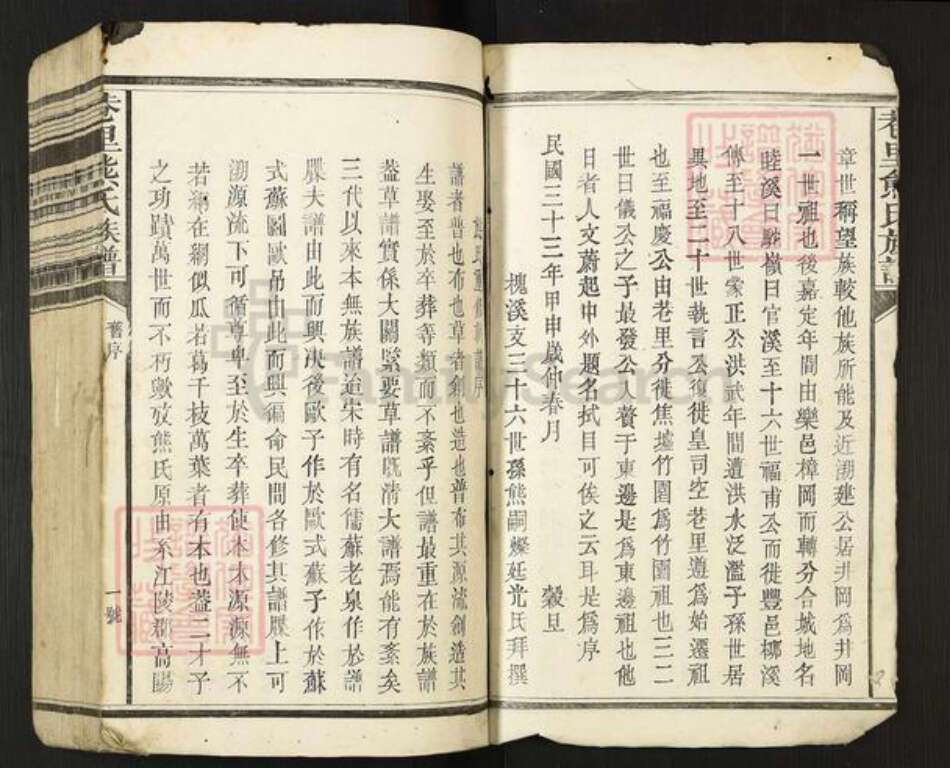 章世稱望族較他族所能及近溯建公居井岡爲井岡
一世祖也後嘉定年間由樂邑樟岡而轉分合城地名
睦溪曰駱嶺曰官溪至十六世福甫公而徙豐邑槨溪
傳至十八世蒙正公洪武年間遭洪水泛濫子孫世居
異地至二十世執言公復徙皇司空巷里遵爲始遷祖
也至福慶公由老里分徙焦墟竹園爲竹園祖也三二
世曰儀公之子最發公入贅于東邊是爲東邊祖也他
日者人文蔚起中外題名拭目可俟之云耳是爲序
民國三十三年甲申歲仲春月 穀旦
槐溪支三十六世孫熊嗣燦廷光氏拜撰
氏重修 譜序
譜者普也布也草者創也造也普布其源流創造其
生娶至於卒葬等類而不紊乎但譜最重在於族譜
蓋草譜實係大關緊要草譜既清大譜焉能有紊矣
三代以來本無族譜迨宋時有名儒蘇老泉作於譜
牒夫譜由此而興決後歐子作於歐式蘇子作於蘇
式蘇圖歐吊由此而興徧命民間各修其譜牒上可
溯源流下可循尊卑至於生卒葬使本本源源無不
若綱在綱似瓜若葛千枝萬葉者有本也蓋二才予
之功蹟萬世而不朽歟攷熊氏原由系江陵郡高陽
巷里熊氏族譜
舊序
一號
FamilySearch